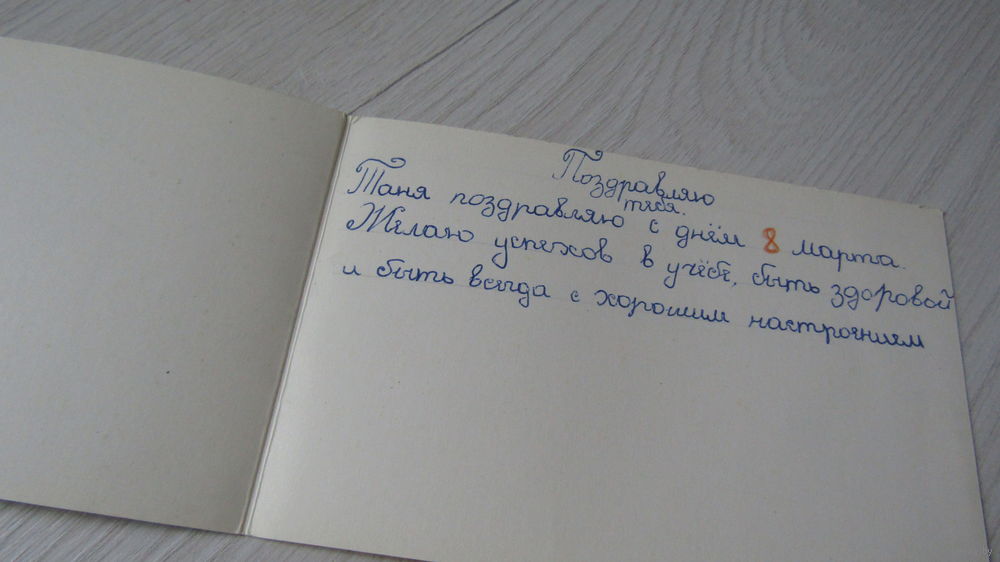 Поздравляю
тебя.
Таня поздравляю с днём 8 марта.
Желаю успехов в учёбе, быть здоровой
и быть всегда с хорошим настроением